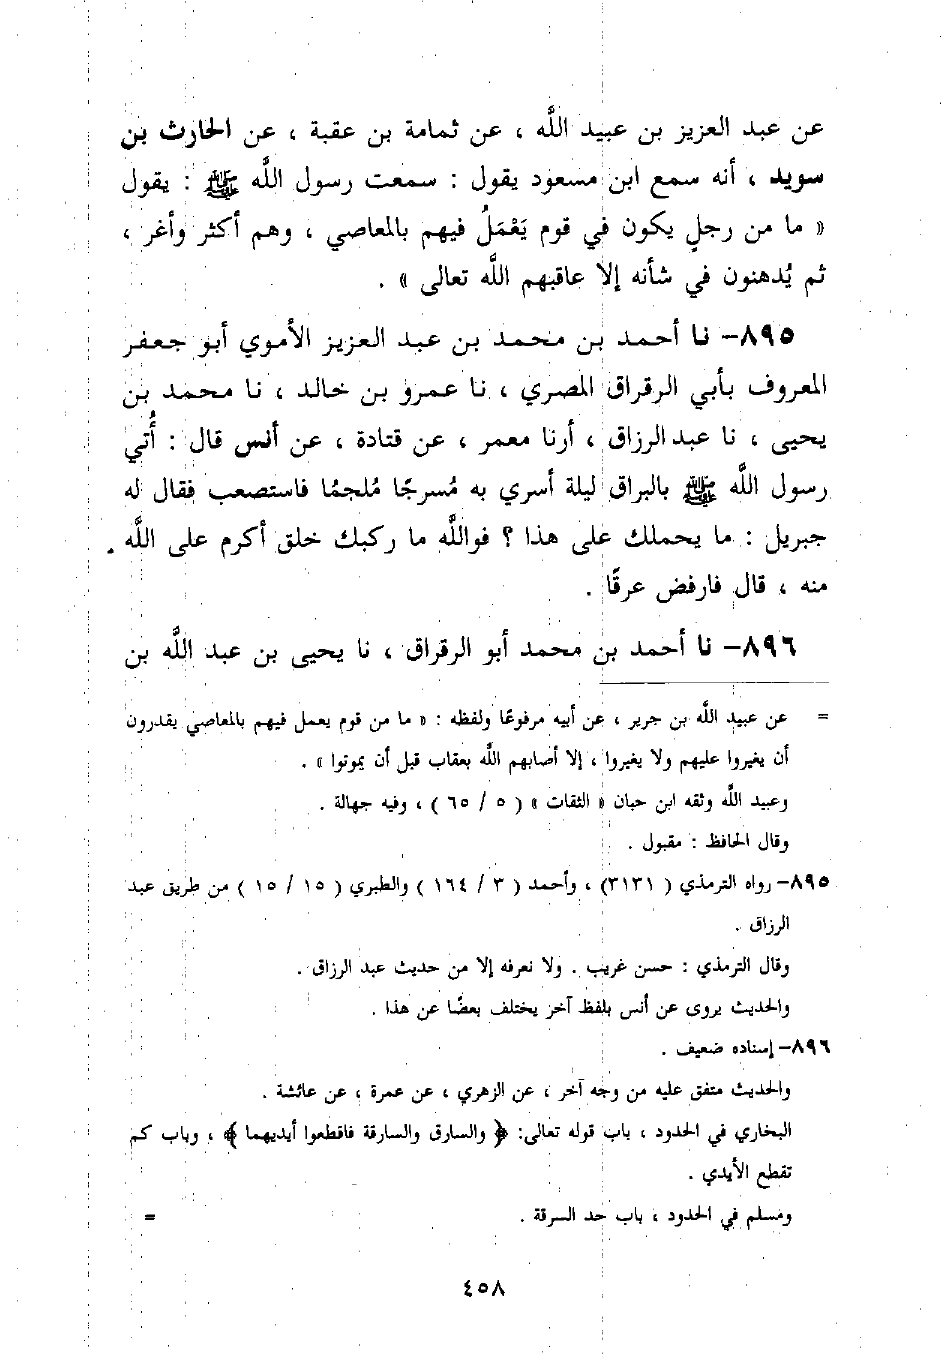 عن عبد العزيز بن عبيد اللَّه ، عن ثمامة بن عقبة ، عن الحارث بن
سويد ، أنه سمع ابن مسعود يقول : سمعت رسول اللَّه ﷺ : يقول
« ما من رجلٍ يكون في قوم يَعْمَلُ فيهم بالمعاصي ، وهم أكثر وأغر ،
ثم يُدهنون في شأنه إلا عاقبهم اللَّه تعالى » .
٨٩٥- نا أحمد بن محمد بن عبد العزيز الأموي أبو جعفر
المعروف بأبي الرقراق المصري ، نا عمرو بن خالد ، نا محمد بن
يحيى ، نا عبد الرزاق ، أرنا معمر ، عن قتادة ، عن أنس قال : أُتي
رسول اللَّه ﷺ بالبراق ليلة أسري به مُسرجًا مُلجمًا فاستصعب فقال له
جبريل : ما يحملك على هذا ؟ فواللَّه ما ركبك خلق أكرم على اللَّه
منه ، قال فارفض عرقًا .
٨٩٦- نا أحمد بن محمد أبو الرقراق ، نا يحيى بن عبد اللَّه بن
= عن عبيد اللَّه بن جرير ، عن أبيه مرفوعًا ولفظه : « ما من قوم يعمل فيهم بالمعاصي يقدرون
أن يغيروا عليهم ولا يغيروا ، إلا أصابهم اللَّه بعقاب قبل أن يموتوا » .
وعبيد اللَّه وثقه ابن حبان « الثقات » ( ٥ / ٦٥ ) ، وفيه جهالة .
وقال الحافظ : مقبول .
٨٩٥- رواه الترمذي ( ٣١٣١) ، وأحمد ( ٣ / ١٦٤ ) والطبري ( ١٥ / ١٥ ) من طريق عبد
الرزاق .
وقال الترمذي : حسن غريب . ولا نعرفه إلا من حديث عبد الرزاق .
والحديث يروى عن أنس بلفظ آخر يختلف بعضًا عن هذا .
٨٩٦- إسناده ضعيف .
والحديث متفق عليه من وجه آخر ، عن الزهري ، عن عمرة ، عن عائشة .
البخاري في الحدود ، باب قوله تعالى: ﴿ والسارق والسارقة فاقطعوا أيديهما ﴾ ، وباب كم
تقطع الأيدي .
ومسلم في الحدود ، باب حد السرقة . =
٤٥٨